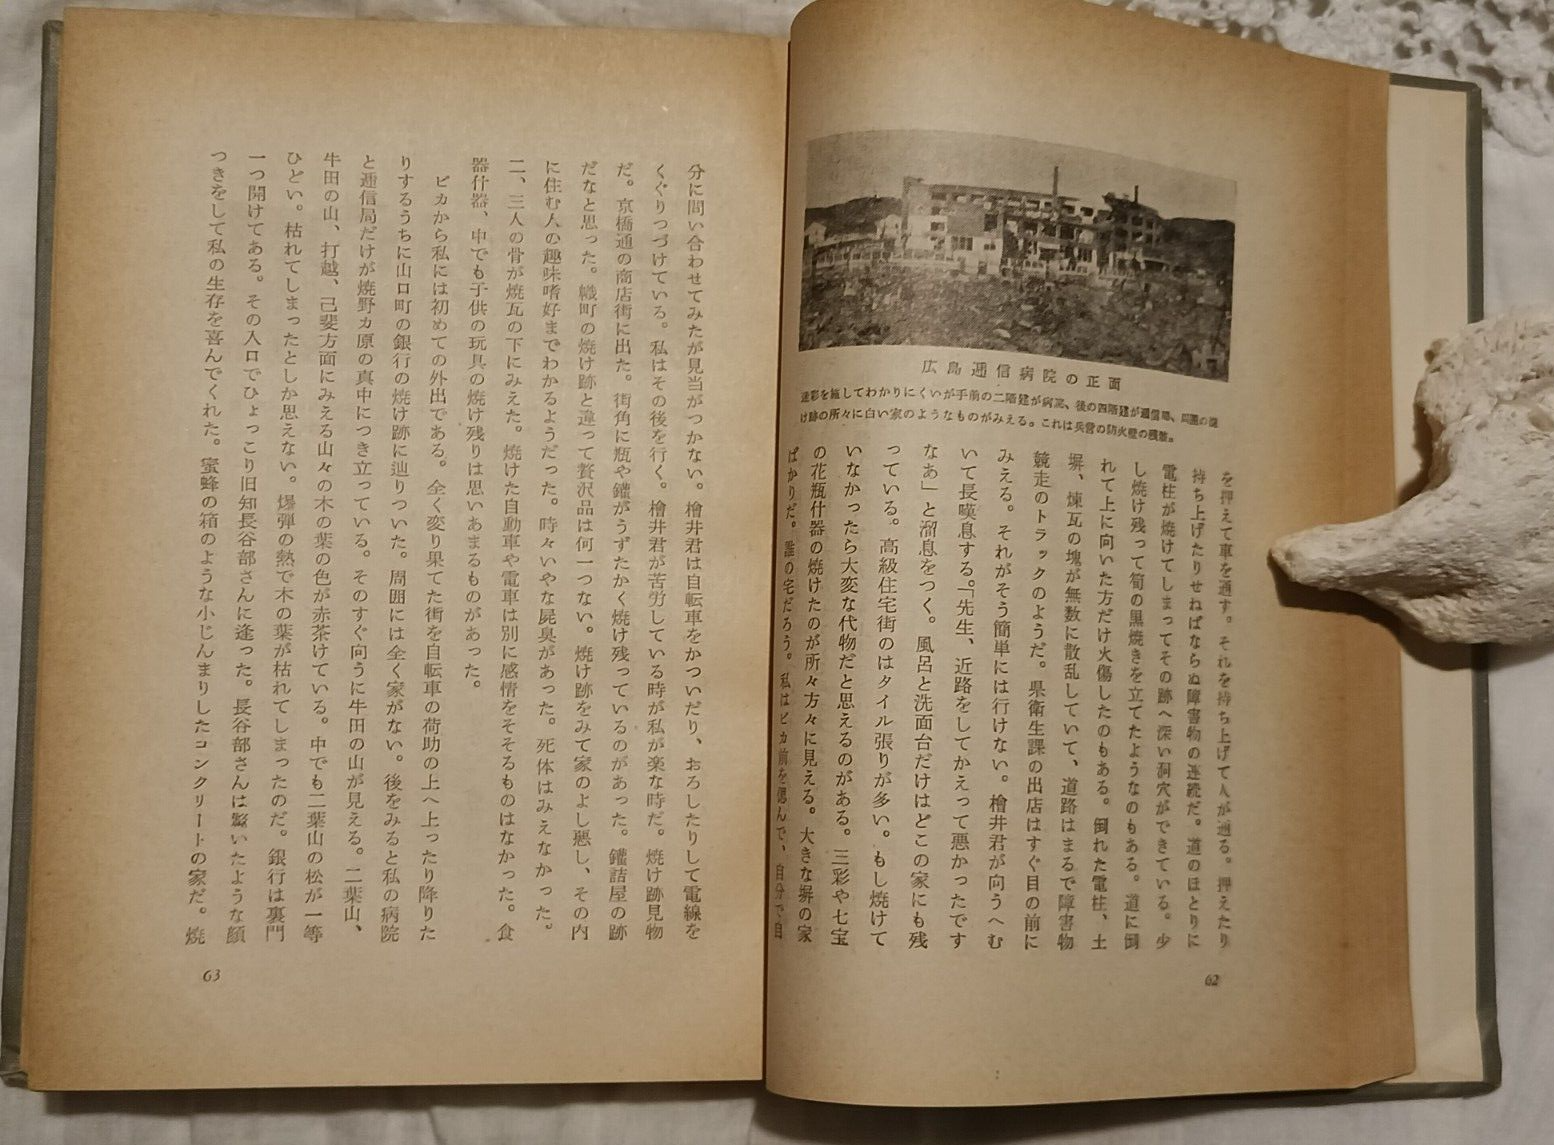 広島逓信病院の正面
迷彩を施してわかりにくいが手前の二階建が病院、後の四階建が逓信局、周囲の焼
け跡の所々に白い家のようなものがみえる。これは兵営の防火壁の残骸。
を押えて車を通す。それを持ち上げて人が通る。押えたり
持ち上げたりせねばならぬ障害物の連続だ。道のほとりに
電柱が焼けてしまってその跡へ深い洞穴ができている。少
し焼け残って筍の黒焼きを立てたようなのもある。道に倒
れて上に向いた方だけ火傷したのもある。倒れた電柱、土
塀、煉瓦の塊が無数に散乱していて、道路はまるで障害物
競走のトラックのようだ。県衛生課の出店はすぐ目の前に
みえる。それがそう簡単には行けない。檜井君が向うへむ
いて長嘆息する。「先生、近路をしてかえって悪かったです
なあ」と溜息をつく。風呂と洗面台だけはどこの家にも残
っている。高級住宅街のはタイル張りが多い。もし焼けて
いなかったら大変な代物だと思えるのがある。三彩や七宝
の花瓶什器の焼けたのが所々方々に見える。大きな塀の家
ばかりだ。誰の宅だろう。私はピカ前を偲んで、自分で自
62
分に問い合わせてみたが見当がつかない。檜井君は自転車をかついだり、おろしたりして電線を
くぐりつづけている。私はその後を行く。檜井君が苦労している時が私が楽な時だ。焼け跡見物
だ。京橋通の商店街に出た。街角に瓶や鑵がうずたかく焼け残っているのがあった。鑵詰屋の跡
だなと思った。幟町の焼け跡と違って贅沢品は何一つない。焼け跡をみて家のよし悪し、その内
に住む人の趣味嗜好までわかるようだった。時々いやな屍臭があった。死体はみえなかった。
二、三人の骨が焼瓦の下にみえた。焼けた自動車や電車は別に感情をそそるものはなかった。食
器什器、中でも子供の玩具の焼け残りは思いあまるものがあった。
ピカから私には初めての外出である。全く変り果てた街を自転車の荷助の上へ上ったり降りた
りするうちに山口町の銀行の焼け跡に辿りついた。周囲には全く家がない。後をみると私の病院
と逓信局だけが焼野カ原の真中につき立っている。そのすぐ向うに牛田の山が見える。二葉山、
牛田の山、打越、己斐方面にみえる山々の木の葉の色が赤茶けている。中でも二葉山の松が一等
ひどい。枯れてしまったとしか思えない。爆弾の熱で木の葉が枯れてしまったのだ。銀行は裏門
一つ開けてある。その入口でひょっこり旧知長谷部さんに逢った。長谷部さんは驚いたような顔
つきをして私の生存を喜んでくれた。蜜蜂の箱のような小じんまりしたコンクリートの家だ。焼
63